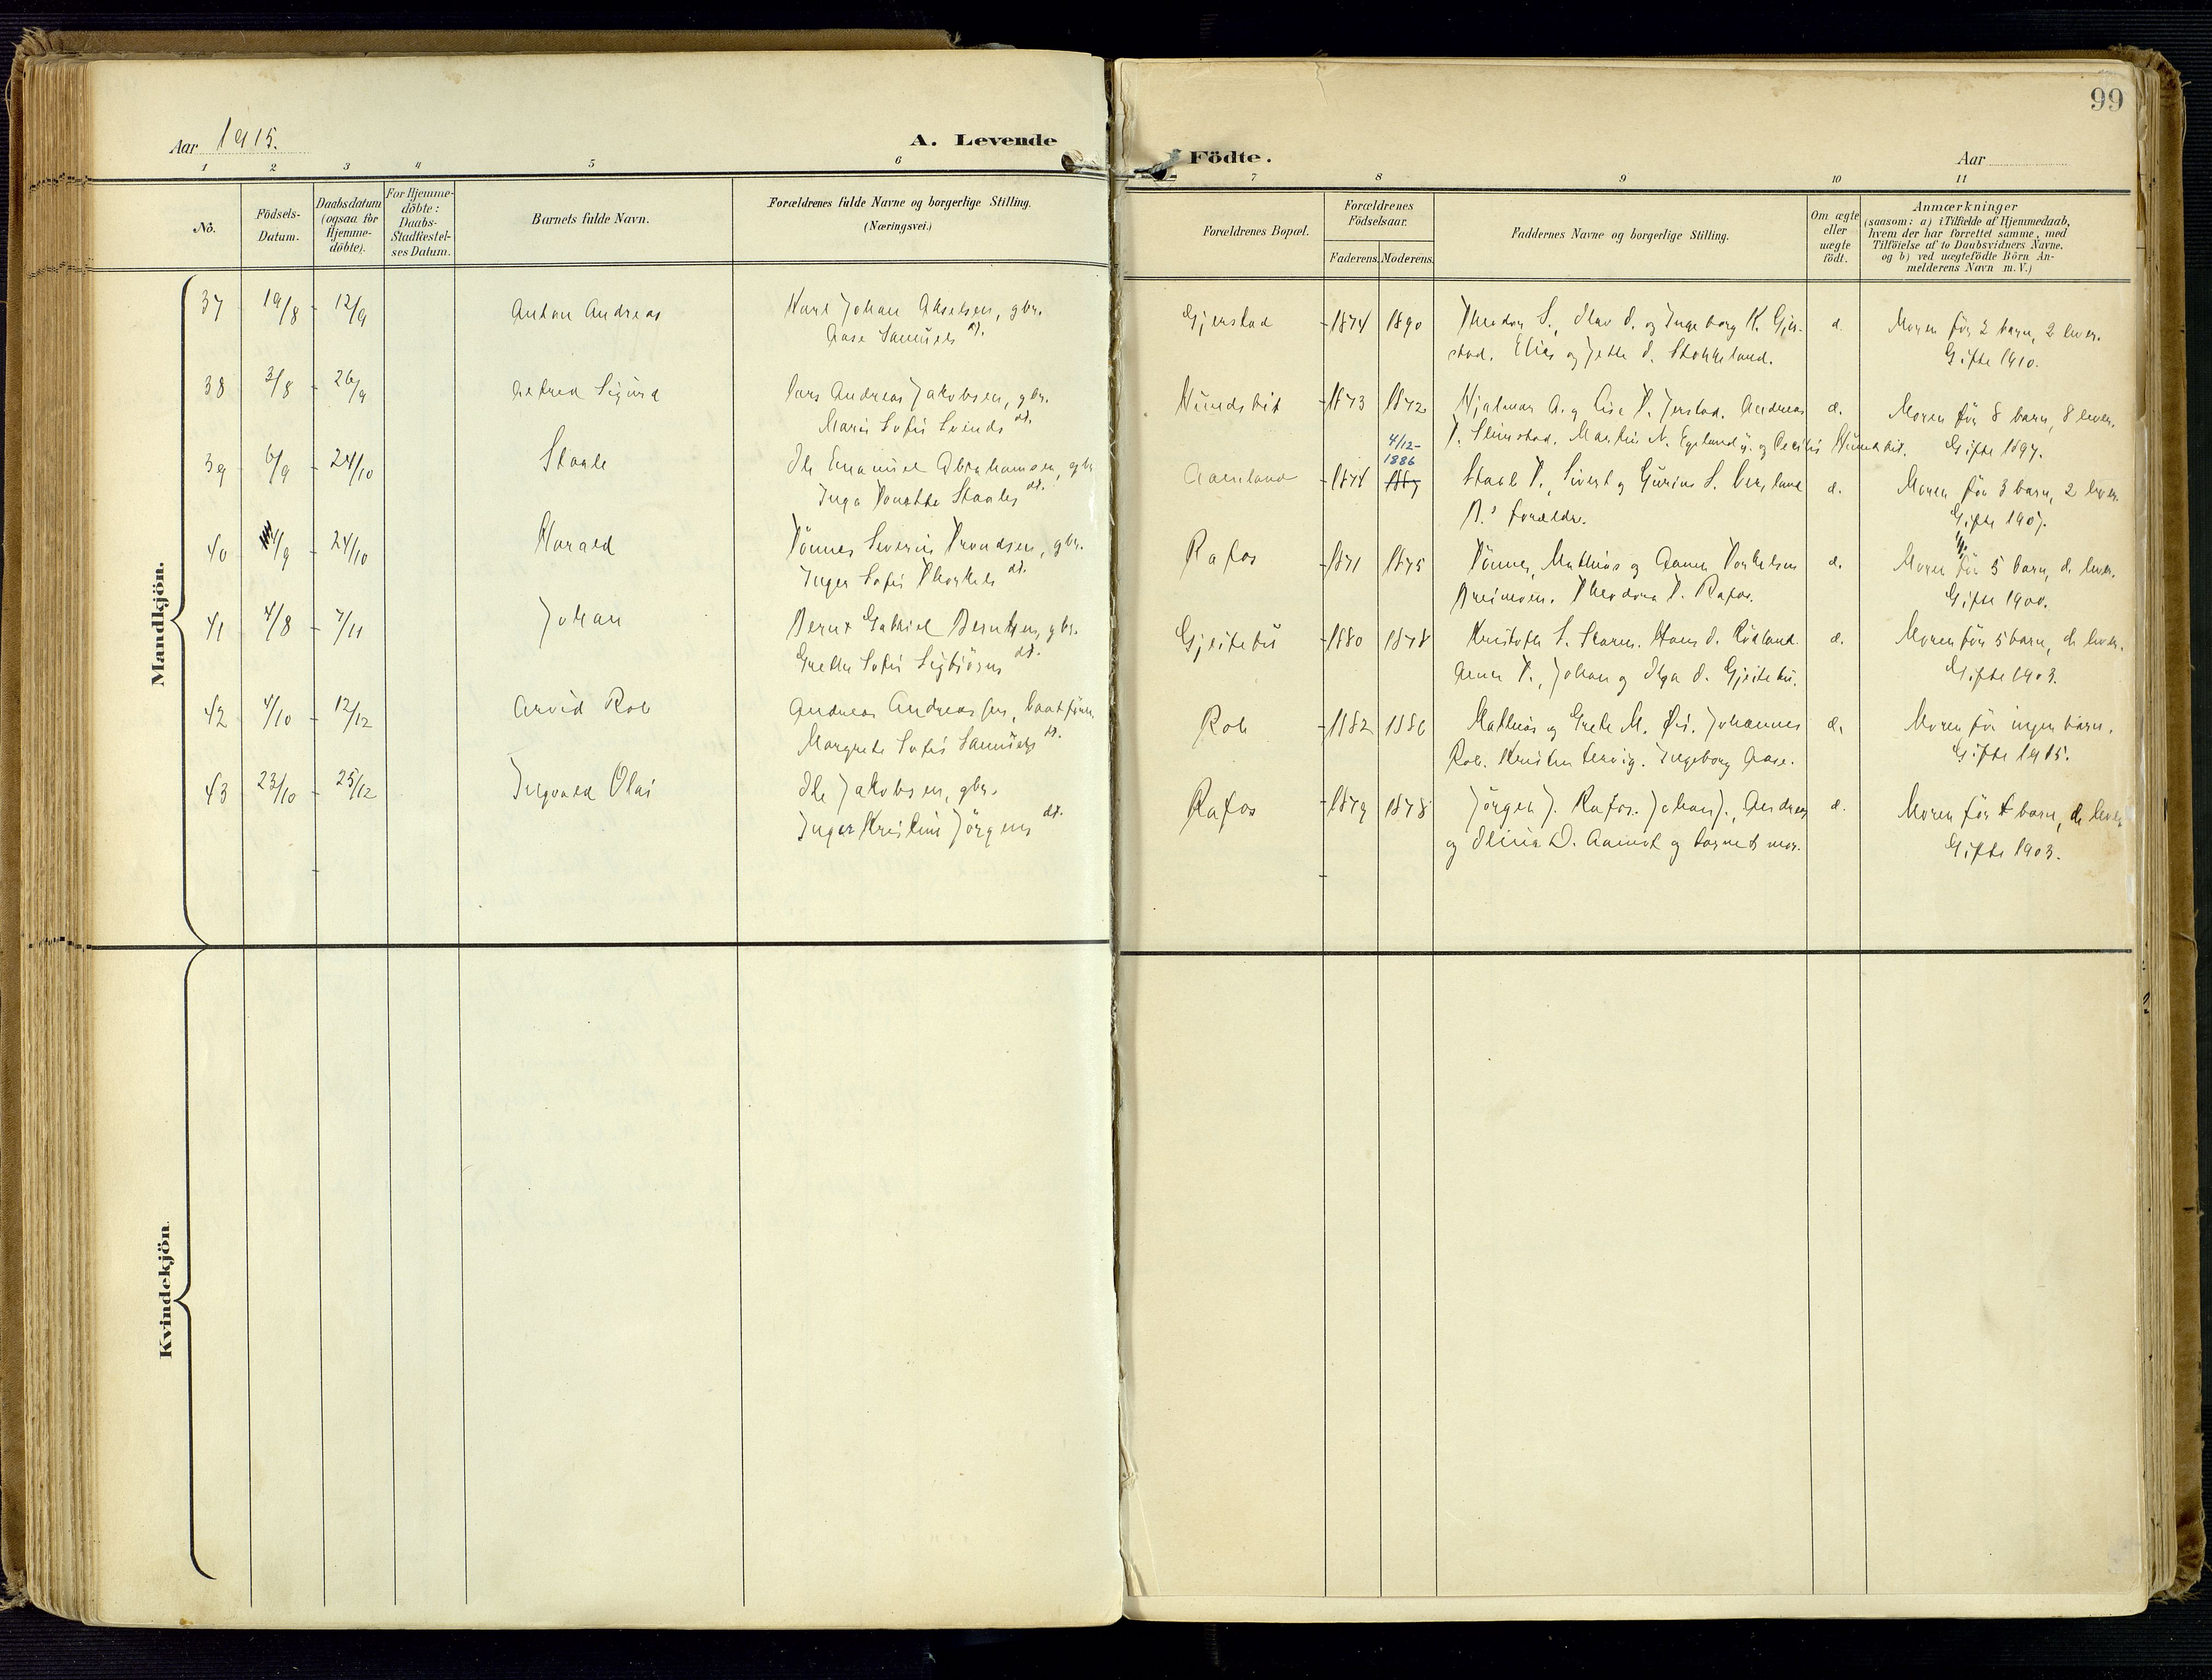 99
Aar 1915.
A. Levende
Födte.
Aar
1 2 3 4 5 6
7 8 9 10 11
No.
Födsels-
Datum.
Daabsdatum
(ogsaa for
Hjemme-
döbte).
For Hjemme-
döbte:
Daabs-
Stadfæstel-
ses Datum.
Barnets fulde Navn.
Forældrenes fulde Navne og borgerlige Stilling.
(Næringsvei.)
Forældrenes Bopæl.
Forældrenes
Födselsaar.
Faderens. Moderens.
Faddernes Navne og borgerlige Stilling.
Om ægte
eller
uægte
födt.
Anmærkninger
(saasom: a) i Tilfælde af Hjemmedaab,
hvem der har forrettet samme, med
Tilföielse af to Daabsvidners Navne.
og b) ved uægtefödte Börn An-
melderens Navn m. V.)
Mandkjön.
37 19/8 12/9 Anton Andreas Karl Johan Akselsen, gbr. Gjerstad 1874 1890 Theodor S., Olav O. og Ingeborg K. Gjer- æ. Moren før 2 barn, 2 lever.
Aase Samuels dt. stad. Elias og Jette O. Stokkeland. Gifte 1910.
38 3/8 26/9 Alfred Sigurd Lars Andreas Jakobsen, gbr. 1873 1872 Hjalmar A. og Lise T. Jerstad. Andreas æ. Moren før 8 barn, 8 lever.
Marie Sofie Svends dt. Martin N. Egeland Gifte 1897.
39 6/9 24/10 Staale Ole Emanuel Abrahamsen, gbr. 1878 4/12-
1886 Staale T., Sivert og Gurine S. æ. Moren før 3 barn, 2 lever.
Inga Staales dt. forældr. Gifte 1907.
40 /9 24/10 Harald Tønnes Severin Trondsen, gbr. Rafos 1871 1875 Tønnes, Mathias og Anna Torkelsen æ. Moren før 5 barn, de lever.
Inger Sofie Thorkels dt. Theodora T. Rafos. Gifte 1900.
41 4/8 7/11 Johan Bernt Gabriel Berntsen, gbr. Gjeitebu 1880 1878 Kristofer S. Hans O. æ. Moren før 5 barn, de lever.
Grethe Sofie Sigbjörns dt. Anna T., Johan og Olga O. Gjeitebu. Gifte 1903.
42 4/10 12/12 Arvid Rob Andreas Andreassen, baatfører Rob 1882 1886 Mathias og Grete M. Øie. Johannes æ. Moren før ingen barn.
Margrete Sofie Samuels dt. Rob. Ingeborg Aase. Gifte 1915.
43 23/10 25/12 Ingvald Olai Ole Jakobsen, gbr. Rafos 1879 1878 Jörgen J. Rafos. Johan J., Andreas æ. Moren før barn, de lever
Inger Kristine Jörgens dt. og Oline O. Aamot og barnets mor. Gifte 1903.
Kvindekjön.